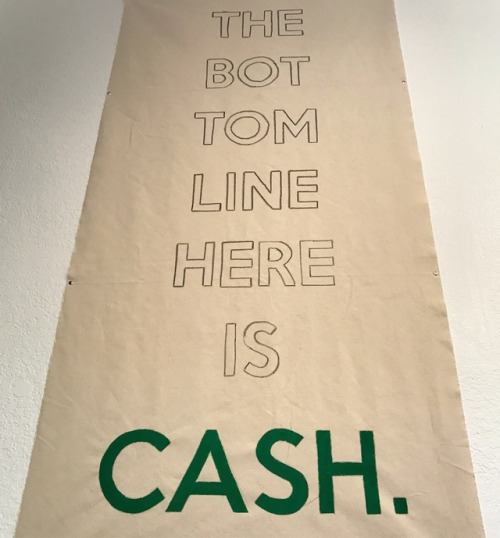 THE
BOT
TOM
LINE
HERE
IS
CASH.